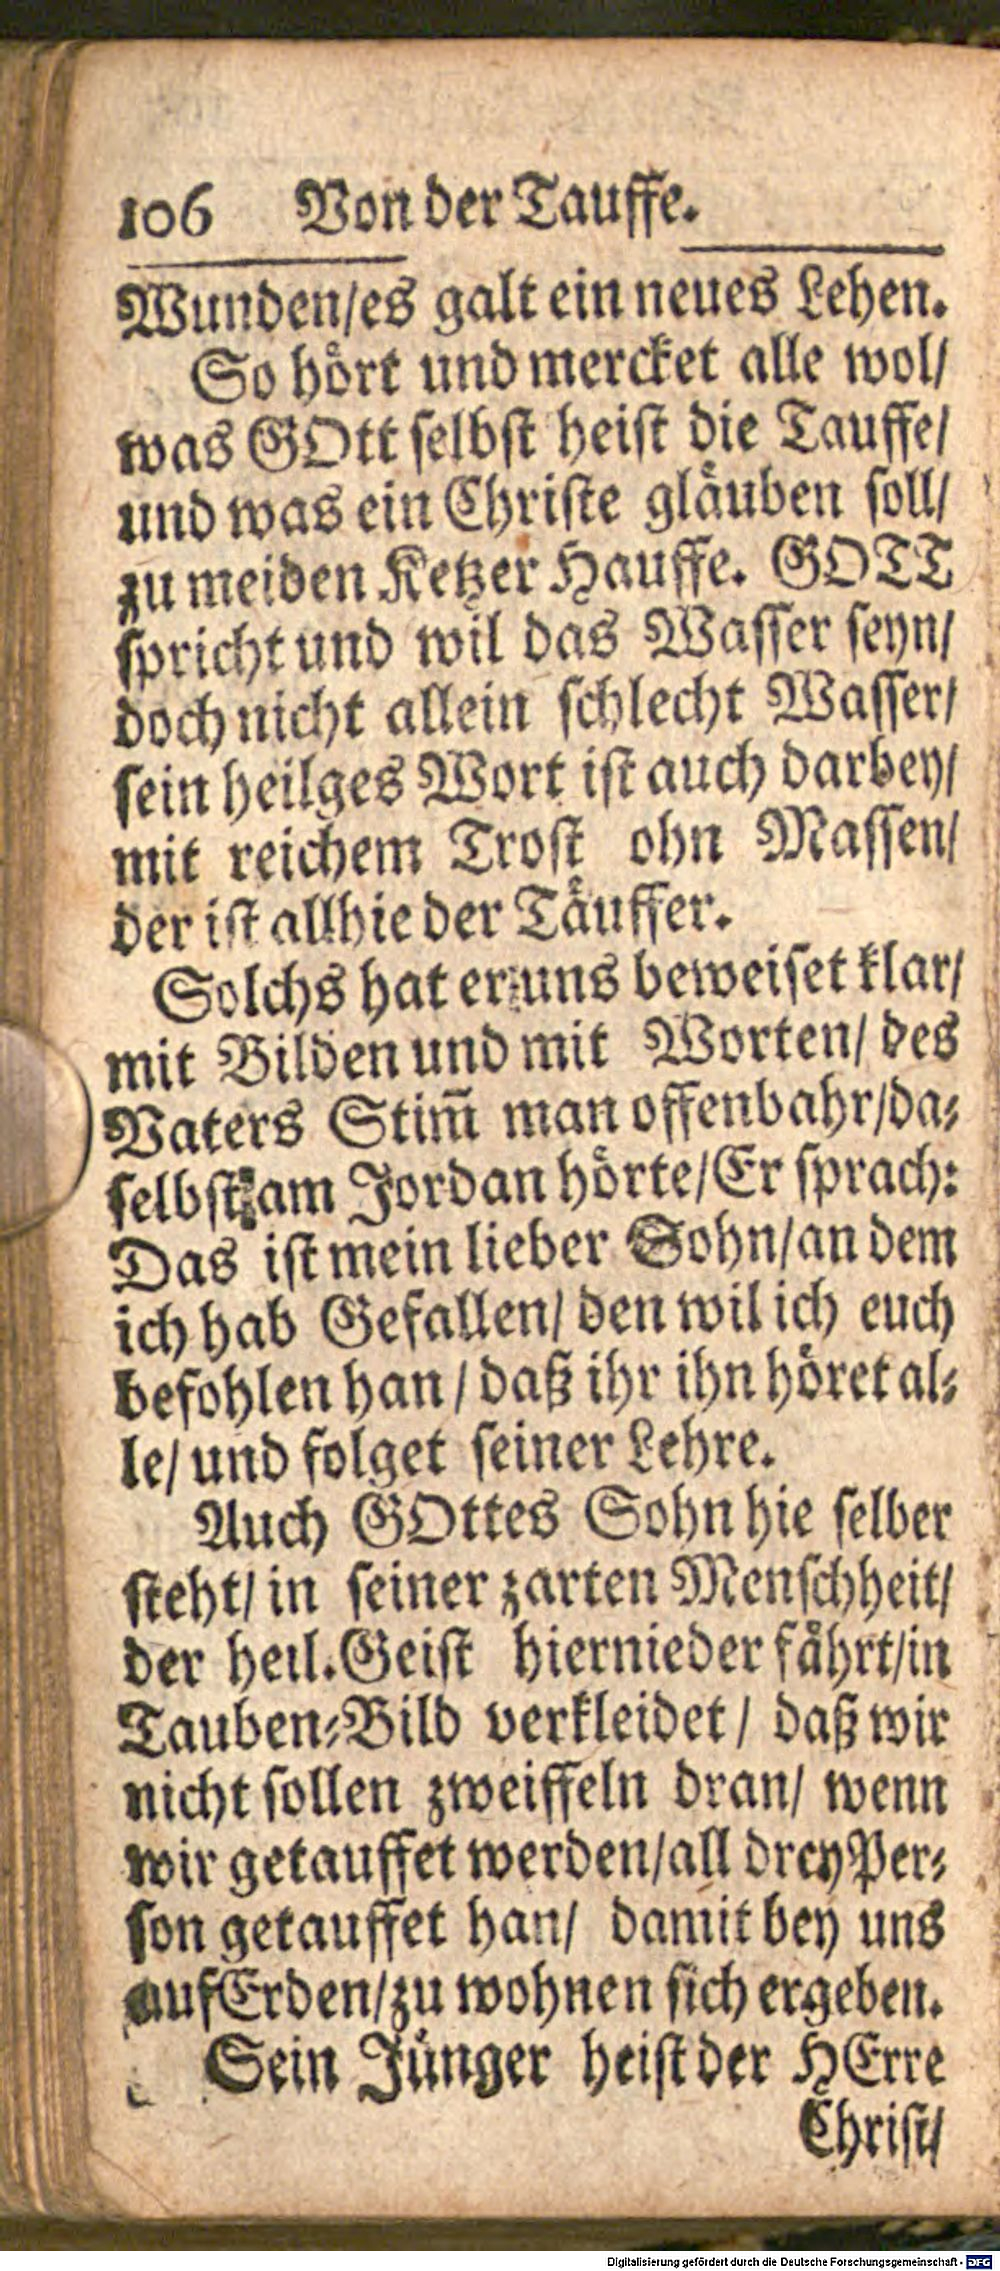 106 Von der Tauffe.
Wunden/es galt ein neues Lehen.
So hört und mercket alle wol/
was GOtt selbst heist die Tauffe/
und was ein Christe gläuben soll/
zu meiden Ketzer Hauffe. GOTT
spricht und wil das Wasser seyn/
doch nicht allein schlecht Wasser/
sein heilges Wort ist auch darbey/
mit reichem Trost ohn Massen/
der ist allhie der Täuffer.
Solchs hat er uns beweiset klar/
mit Bilden und mit Worten/ des
Vaters Stim̃ man offenbahr/da-
selbst am Jordan hörte/Er sprach:
Das ist mein lieber Sohn/an dem
ich hab Gefallen/ den wil ich euch
befohlen han/ daß ihr ihn höret al-
le/ und folget seiner Lehre.
Auch GOttes Sohn hie selber
steht/ in seiner zarten Menschheit/
der heil. Geist hiernieder fährt/in
Tauben-Bild verkleidet/ daß wir
nicht sollen zweiffeln dran/ wenn
wir getauffet werden/all drey Per-
son getauffet han/ damit bey uns
auf Erden/zu wohnen sich ergeben.
Sein Jünger heist der HErre
Christ/
Digitalisierung gefördert durch die Deutsche Forschungsgemeinschaft - DFG